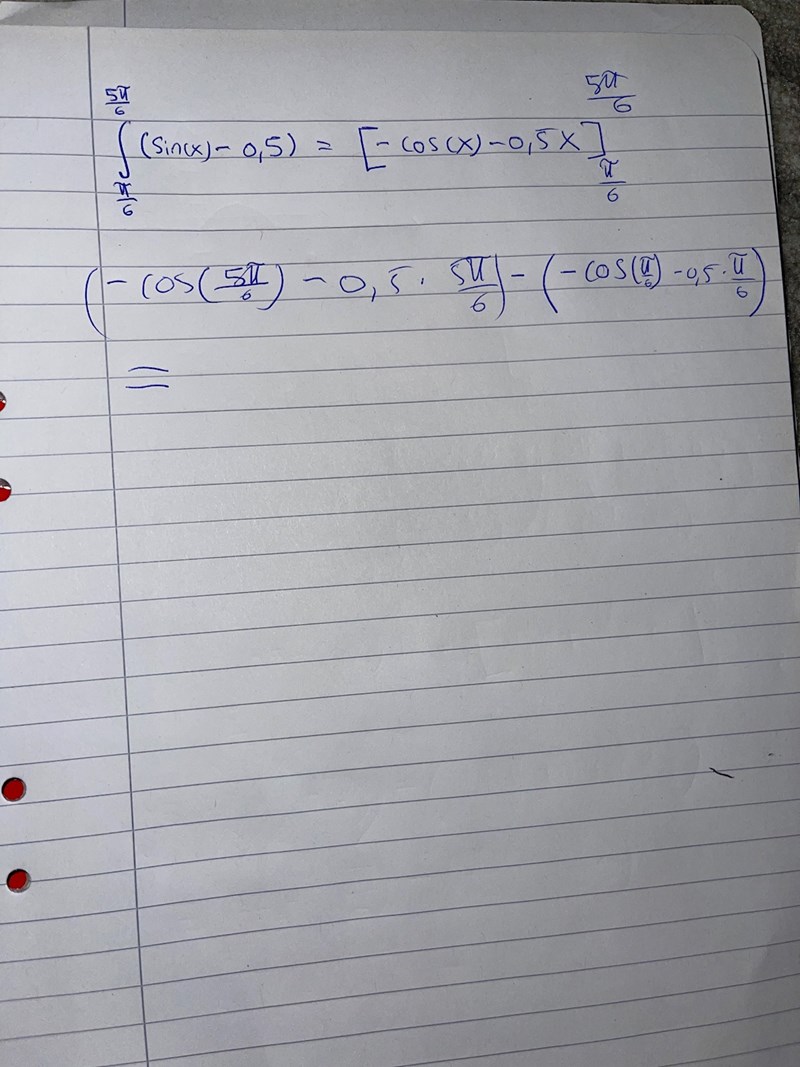 5π/6
∫ (sin(x) - 0,5) = [- cos(x) - 0,5x] 5π/6
π/6 π/6
(- cos(5π/6) - 0,5 · 5π/6) - (- cos(π/6) - 0,5 · π/6)
=